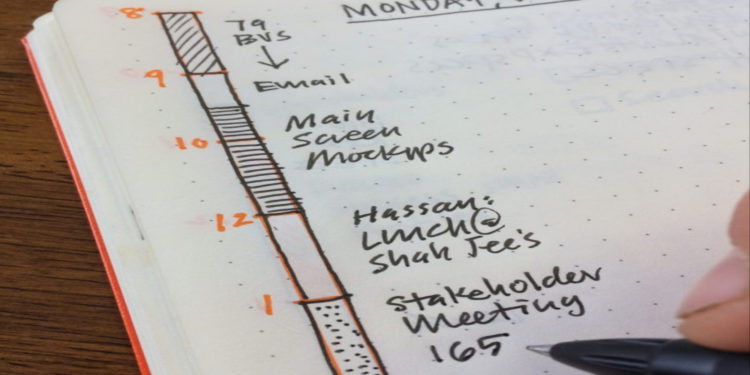 MONDAY,
8
79
BVS
9
Email
Main
10
Screen
Mockups
12
Hassan:
Lunch@
Shah Jee's
1
Stakeholder
Meeting
165